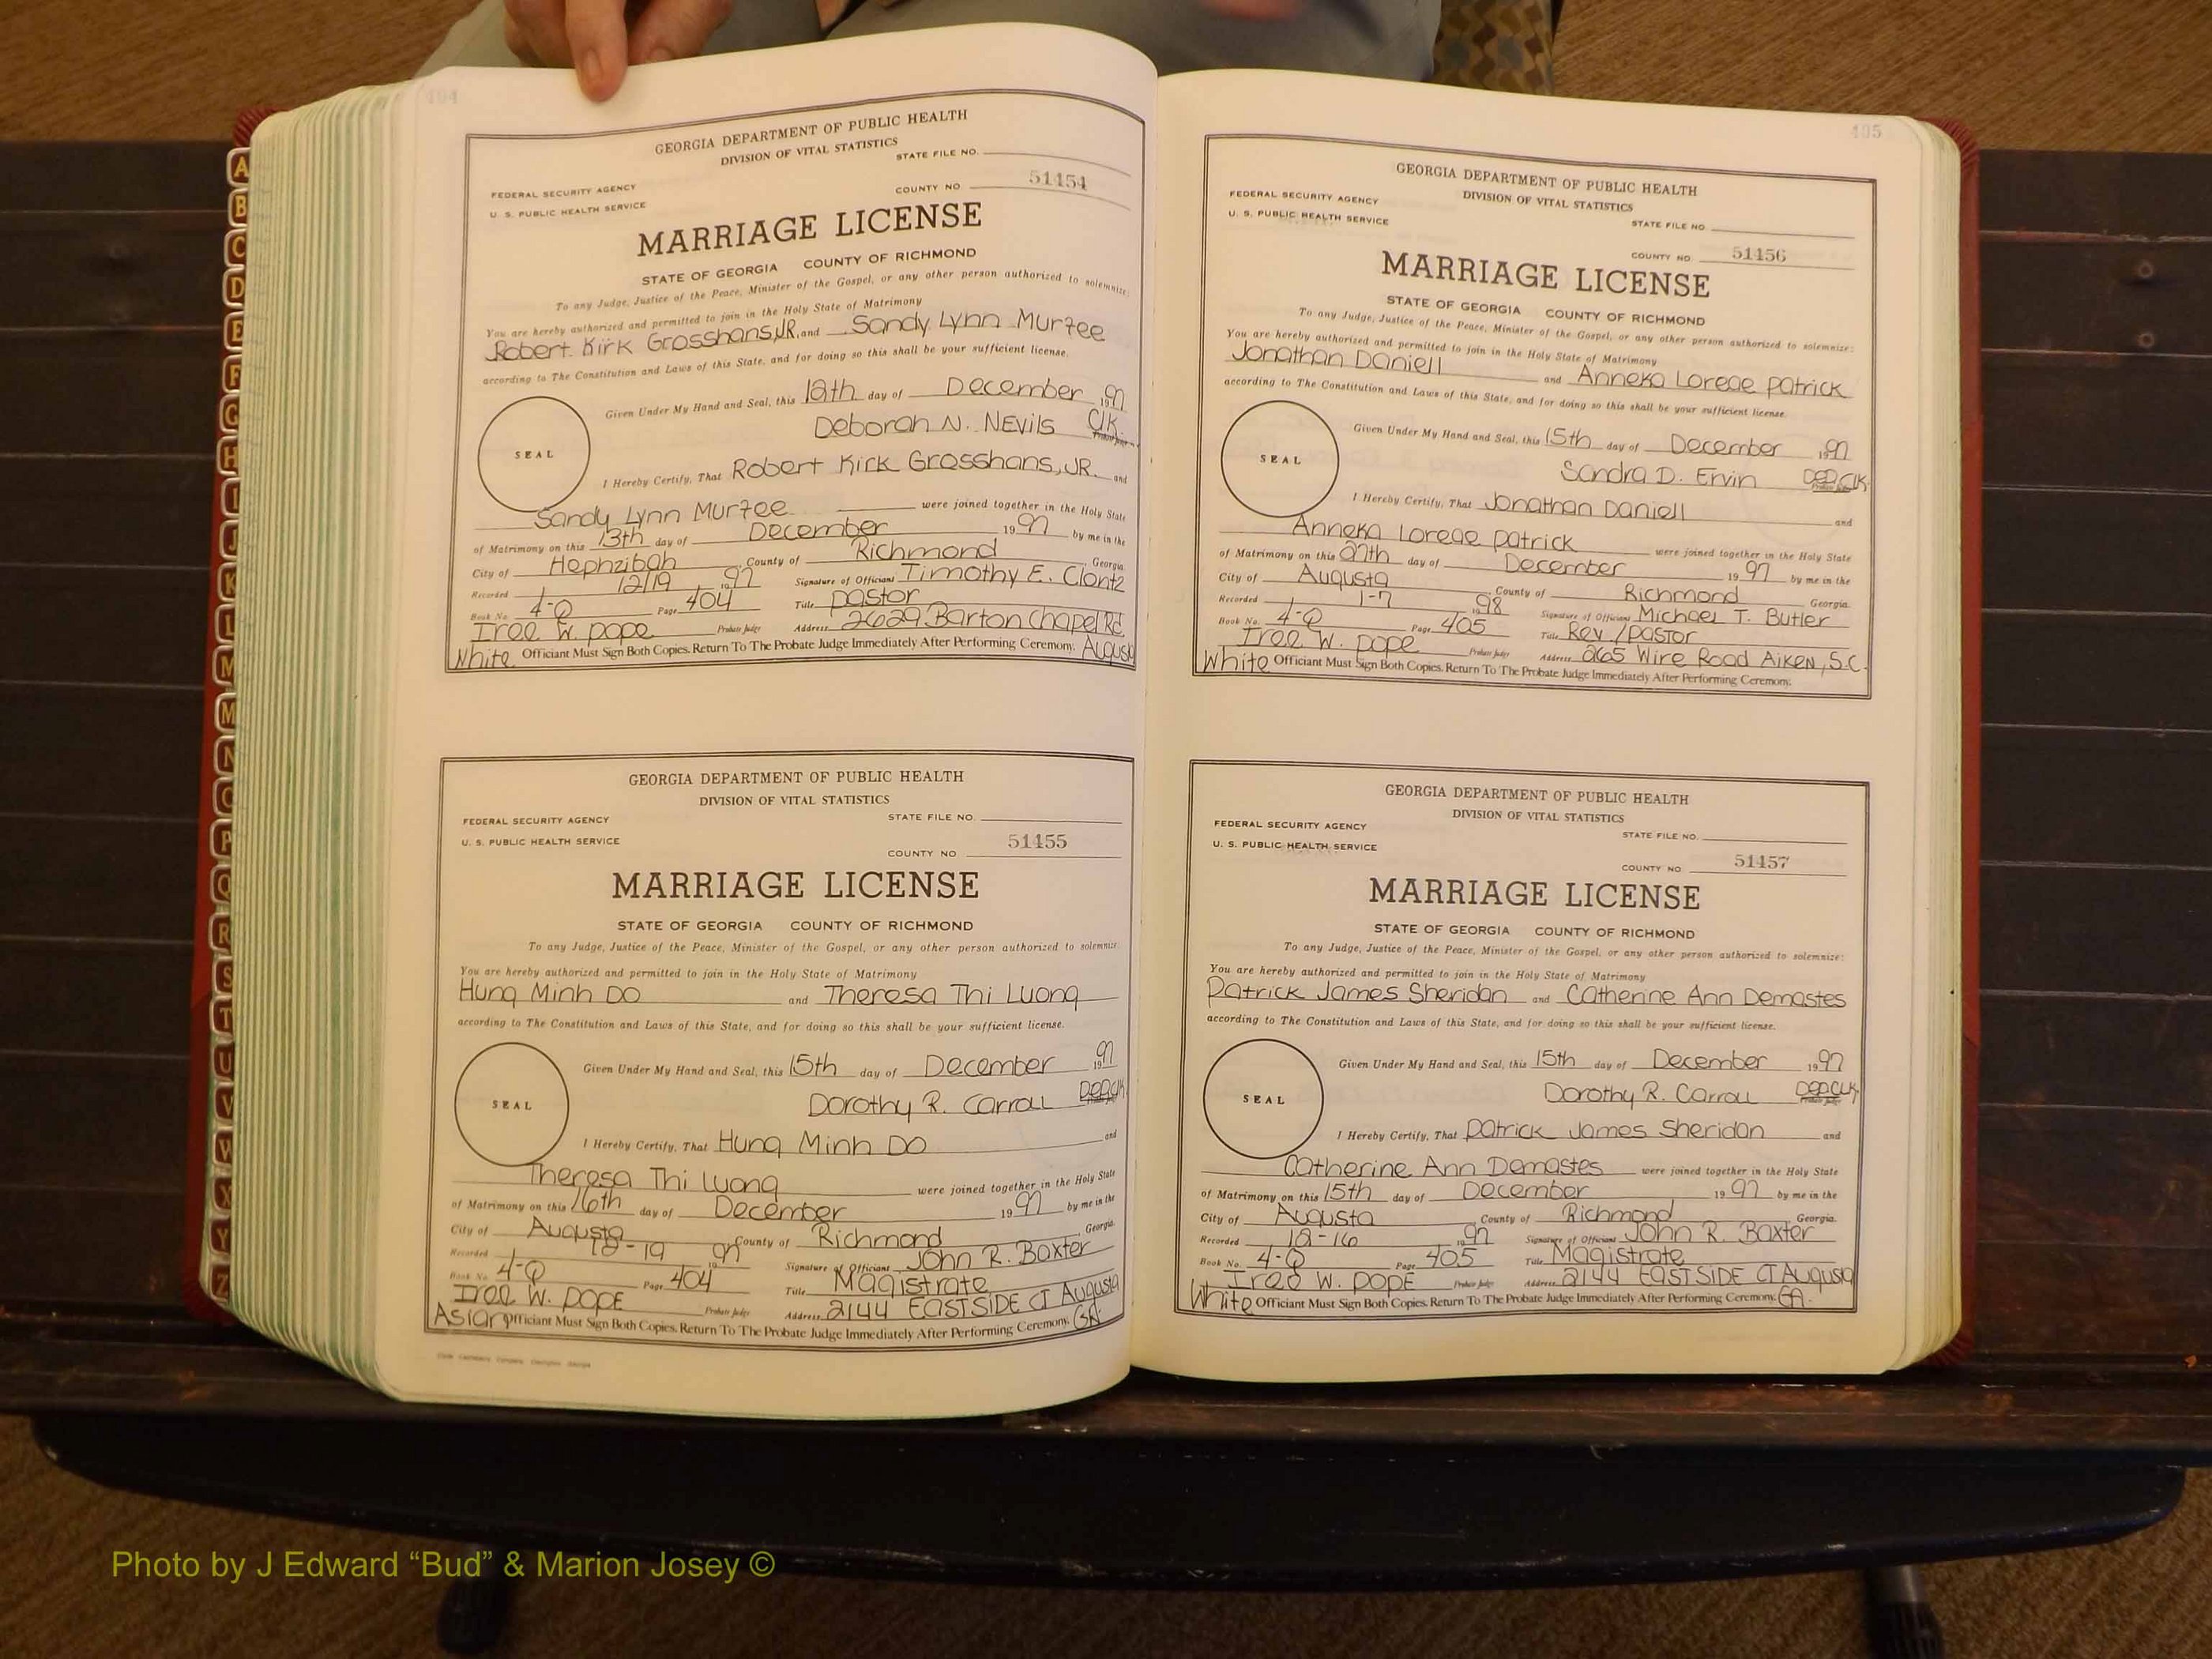 404
GEORGIA DEPARTMENT OF PUBLIC HEALTH
DIVISION OF VITAL STATISTICS
STATE FILE NO.
FEDERAL SECURITY AGENCY
COUNTY NO 51454
U. S. PUBLIC HEALTH SERVICE
MARRIAGE LICENSE
STATE OF GEORGIA COUNTY OF RICHMOND
To any Judge, Justice of the Peace, Minister of the Gospel, or any other person authorized to solemnize:
You are hereby authorized and permitted to join in the Holy State of Matrimony
Robert Kirk Grosshans, JR. and Sandy Lynn Murzee
according to The Constitution and Laws of this State, and for doing so this shall be your sufficient license.
Given Under My Hand and Seal, this 12th day of December 1997
Deborah N. NEvils Clk.
Probate Judge
SEAL
I Hereby Certify, That Robert Kirk Grosshans, JR. and
Sandy Lynn Murzee were joined together in the Holy State
of Matrimony on this 13th day of December 1997 by me in the
City of Hephzibah County of Richmond Georgia
Recorded 12/19 1997 Signature of Officiant Timothy E. Clontz
Book No. 4-Q Page 404 Title pastor
Iree W. pope Probate Judge Address 2629 Barton Chapel Rd
White Officiant Must Sign Both Copies. Return To The Probate Judge Immediately After Performing Ceremony. Augusta
GEORGIA DEPARTMENT OF PUBLIC HEALTH
DIVISION OF VITAL STATISTICS
FEDERAL SECURITY AGENCY STATE FILE NO.
U. S. PUBLIC HEALTH SERVICE
COUNTY NO 51455
MARRIAGE LICENSE
STATE OF GEORGIA COUNTY OF RICHMOND
To any Judge, Justice of the Peace, Minister of the Gospel, or any other person authorized to solemnize:
You are hereby authorized and permitted to join in the Holy State of Matrimony
Hung Minh DO and Theresa Thi Luong
according to The Constitution and Laws of this State, and for doing so this shall be your sufficient license.
Given Under My Hand and Seal, this 15th day of December 1997
Dorothy R. Carroll DEP.Clk
Probate Judge
SEAL
I Hereby Certify, That Hung Minh DO and
Theresa Thi Luong were joined together in the Holy State
of Matrimony on this 16th day of December 1997 by me in the
City of Augusta County of Richmond Georgia.
Recorded 12-19 1997 Signature of Officiant John R. Baxter
Book No. 4-Q Page 404 Title Magistrate
Iree W. POPE Probate Judge Address 2144 EASTSIDE CT Augusta
Asian Officiant Must Sign Both Copies. Return To The Probate Judge Immediately After Performing Ceremony. GA.
405
GEORGIA DEPARTMENT OF PUBLIC HEALTH
DIVISION OF VITAL STATISTICS
FEDERAL SECURITY AGENCY
U. S. PUBLIC HEALTH SERVICE
STATE FILE NO.
COUNTY NO. 51456
MARRIAGE LICENSE
STATE OF GEORGIA COUNTY OF RICHMOND
To any Judge, Justice of the Peace, Minister of the Gospel, or any other person authorized to solemnize:
You are hereby authorized and permitted to join in the Holy State of Matrimony
Jonathan Daniell and Anneka Loreae patrick
according to The Constitution and Laws of this State, and for doing so this shall be your sufficient license.
Given Under My Hand and Seal, this 15th day of December 1997
Sandra D. Ervin DEP.Clk.
Probate Judge
SEAL
I Hereby Certify, That Jonathan Daniell and
Anneka Loreae patrick were joined together in the Holy State
of Matrimony on this 27th day of December 1997 by me in the
City of Augusta County of Richmond Georgia.
Recorded 1-7 1998 Signature of Officiant Michael T. Butler
Book No. 4-Q Page 405 Title Rev/Pastor
Iree W. pope Probate Judge Address 265 Wire Road Aiken, S.C.
White Officiant Must Sign Both Copies. Return To The Probate Judge Immediately After Performing Ceremony.
GEORGIA DEPARTMENT OF PUBLIC HEALTH
DIVISION OF VITAL STATISTICS
FEDERAL SECURITY AGENCY
STATE FILE NO.
U. S. PUBLIC HEALTH SERVICE
COUNTY NO 51457
MARRIAGE LICENSE
STATE OF GEORGIA COUNTY OF RICHMOND
To any Judge, Justice of the Peace, Minister of the Gospel, or any other person authorized to solemnize:
You are hereby authorized and permitted to join in the Holy State of Matrimony
Patrick James Sheridan and Catherine Ann Demastes
according to The Constitution and Laws of this State, and for doing so this shall be your sufficient license.
Given Under My Hand and Seal, this 15th day of December 1997
Dorothy R. Carroll DEP.CLK
Probate Judge
SEAL
I Hereby Certify, That Patrick James Sheridan and
Catherine Ann Demastes were joined together in the Holy State
of Matrimony on this 15th day of December 1997 by me in the
City of Augusta County of Richmond Georgia.
Recorded 12-16 1997 Signature of Officiant John R. Baxter
Book No. 4-Q Page 405 Title Magistrate
Iree W. POPE Probate Judge Address 2144 EASTSIDE CT Augusta
White Officiant Must Sign Both Copies. Return To The Probate Judge Immediately After Performing Ceremony. GA.
A
B
C
D
E
F
G
H
I
J
K
L
M
M
N
O
P
Q
R
S
T
U
V
W
X
Y
Z
Photo by J Edward “Bud” & Marion Josey ©